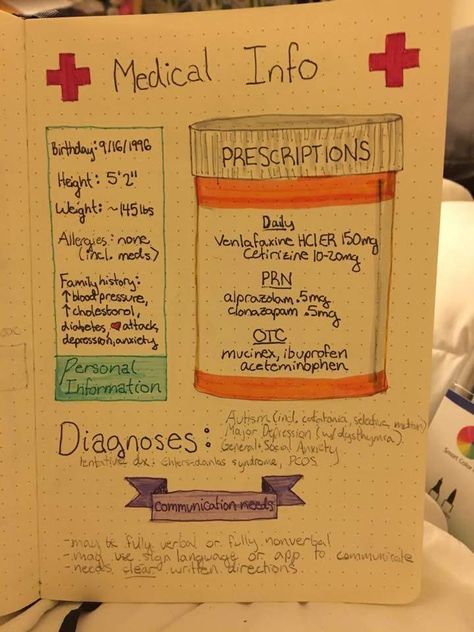 Medical Info
Birthday: 9/16/1996
Height: 5'2"
Weight: ~145lbs
Allergies: none
(incl. meds)
Family history:
↑ blood pressure,
↑ cholesterol,
diabetes, ♥ attack,
depression, anxiety
Personal
Information
PRESCRIPTIONS
Daily
Venlafaxine HCl ER 150mg
Cetirizine 10-20mg
PRN
alprazolam .5mg
clonazapam .5mg
OTC
mucinex, ibuprofen
aceteminophen
Diagnoses:
Autism (incl. catatonia, selective mutism)
Major Depression (w/dysthymia)
General + Social Anxiety
tentative dx: Ehlers-danlos syndrome, PCOS
communication needs
- may be fully verbal or fully nonverbal
- may use sign language or app to communicate
- needs clear written directions
Smart Color